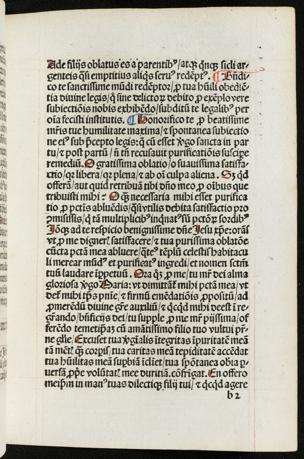 Ade filijs oblatus es a parentibꝰ/ atqꝫ qnqꝫ sicli ar-
genteis qsi emptitius aliqs seruꝰ redēptꝰ. ¶ Bndi-
co te sanctissime mūdi redēptor/ ꝓ tua hūili obediē-
tia diuine legis/ q sine
subiectiōis nobis exhibēdo/ subditū te legalibꝰ per
oīa fecisti institutis. ¶ Honorifico te ꝓ beatissime
mīris tue humilitate maxima/ ⁊ spontanea subiectio
ne eiꝰ sub p̄cepto legis: q cū esset Ꝟgo sancta in par
tu/ ⁊ post partū/ n̄ tn̄ recusauit purificatiōis suscipe
remediū. O gratissima oblatio/ o suauissima satisfa-
ctio/ q libera/ qꝫ plena/ ⁊ ab oī culpa aliena. Sꝫ qd
offerā/ aut quid retribuā tibi dn̄o meo/ ꝓ oībus que
tribuisti mihi: O q necessaria mihi esset purifica
tio/ ꝓ pctis abluēdis/ qsi vtilis debita satisfactio pro
missis/ q tā multiplicibꝰ inqnatꝰ sū pctoꝝ sordibꝰ
Iōcqꝫ ad te respicio benignissime dn̄e Iesu xp̄e: orās
vt ꝓ me digneris satisfacere/ ⁊ tua purissima oblatōne
cūcta pctā mea abluere/
li mercar mūdꝰ ⁊ purificatꝰ ingredi/ ⁊ nomen scrip
tus laudare īꝑpetuū. Ora qs ꝓ me/ tu mr̄ dei alma
gloriosa Ꝟgo Maria: vt dimittāt mihi pctā mea/ vt
det mihi tꝑs pn̄ie/ ⁊ firmū emēdatiōis ꝓpositū/ ad
ꝓmerēdū diuine gr̄e auxiliū/ ⁊ qcqd mihi deest ī re
grādo/ bn̄ficijs dei/ tu supple ꝓ me mr̄ pijssima/ of
ferēdo temetipaꝫ cū amātissimo filio tuo vultui pr̄
ne gl̄ie/ Excuset tua Ꝟgīalis ītegritas īpuritatē meā
tā mētꝭ qꝫ corpis/ tua caritas meā tepiditatē accēdat
tua hūilitas meā suꝑbiā īcliet/ tua spōtanea obia ꝑ
uersā/ ꝓpe volūtatꝭ mee duriciā/ cōfrīgat. En offero
meipm in manꝰ tuas dilectiqꝫ filij tui/ ⁊ qcqd agere
b 2